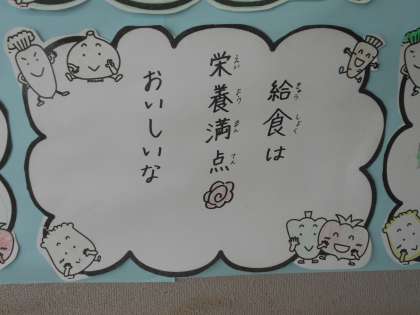 給食は
栄養満点
おいしいな